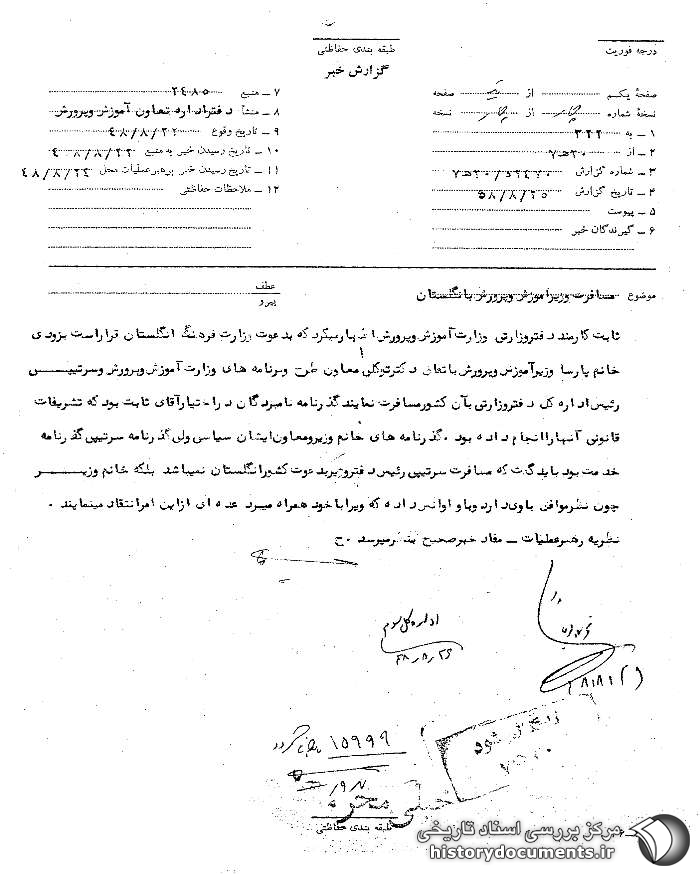 طبقه بندی حفاظتی
درجه فوریت
گزارش خبر
صفحهٔ یکم از یک صفحه
نسخهٔ شماره از نسخه
۱ ـ به ۳۲۲
۲ ـ از ۷ ه‍ ۲۰
۳ ـ شماره گزارش
۴ ـ تاریخ گزارش
۵ ـ پیوست
۶ ـ گیرندگان خبر
۷ ـ منبع ۲۴۸۵
۸ ـ منشأ دفتر اداره تعاون آموزش وپرورش
۹ ـ تاریخ وقوع ۴۸/۸/۲۲
۱۰ ـ تاریخ رسیدن خبر به منبع ۴۸/۸/۲۲
۱۱ ـ تاریخ رسیدن خبر برهبر عملیات محل ۴۸/۸/۲۴
۱۲ ـ ملاحظات حفاظتی
موضوع مسافرت وزیر آموزش وپرورش بانگلستان
عطف
پیرو
ثابت کارمند دفتر وزارتی وزارت آموزش وپرورش اظهار میکرد که بدعوت وزارت فرهنگ انگلستان قرار است بزودی
خانم پارسا وزیر آموزش وپرورش باتفاق دکتر توکلی معاون طرح وبرنامه های وزارت آموزش وپرورش وسرتیپی
رئیس اداره کل دفتر وزارتی بآن کشور مسافرت نمایند گذرنامه نامبردگان در اختیار آقای ثابت بود که تشریفات
قانونی آنها را انجام داده بود . گذرنامه های خانم وزیر ومعاون ایشان سیاسی ولی گذرنامه سرتیپی گذرنامه
خدمت بود باید گفت که مسافرت سرتیپی رئیس دفتر وزیر بدعوت کشور انگلستان نمیباشد بلکه خانم وزیر
چون نظر موافق باوی دارد وباو اوانس داده که ویرا باخود همراه میبرد عده ای از این امر انتقاد مینمایند .
نظریه رهبر عملیات ـ مفاد خبر صحیح بنظر میرسد . ح
اداره کل سوم
۴۸/۸/۲۶
۱۵۹۹۹
شود
خیلی محرمانه
طبقه بندی حفاظتی
مرکز بررسی اسناد تاریخی
historydocuments.ir